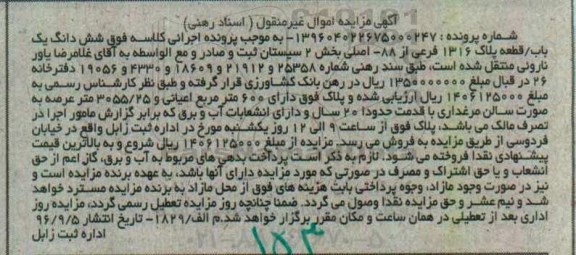 آگهی مزایده اموال غیرمنقول ( اسناد رهنی )
شماره پرونده : ۱۳۹۶۰۴۰۲۲۶۷۵۰۰۰۲۴۷- به موجب پرونده اجرائی کلاسه فوق شش دانگ یک
باب/قطعه پلاک ۱۳۱۶ فرعی از ۸۸- اصلی بخش ۲ سیستان ثبت و صادر و مع الواسطه به آقای غلامرضا یاور
نارونی منتقل شده است، طبق سند رهنی شماره ۲۵۳۵۸ و ۲۱۹۱۲ و ۱۸۶۰۹ و ۴۳۳۰ و ۱۹۰۵۶ دفترخانه
۲۶ در قبال مبلغ ۱۳۵۰۰۰۰۰۰۰ ریال در رهن بانک کشاورزی قرار گرفته و طبق نظر کارشناس رسمی به
مبلغ ۱۴۰۶۱۲۵۰۰۰ ریال ارزیابی شده و پلاک فوق دارای ۶۰۰ متر مربع اعیانی و ۳۰۵۵/۲۵ متر عرصه به
صورت سالن مرغداری با قدمت حدودا ۲۰ سال و دارای انشعابات آب و برق که برابر گزارش مامور اجرا در
تصرف مالک می باشد، پلاک فوق از ساعت ۹ الی ۱۲ روز یکشنبه مورخ در اداره ثبت زابل واقع در خیابان
فردوسی از طریق مزایده به فروش می رسد. مزایده از مبلغ ۱۴۰۶۱۲۵۰۰۰ ریال شروع و به بالاترین قیمت
پیشنهادی نقدا فروخته می شود. لازم به ذکر است پرداخت بدهی های مربوط به آب و برق، گاز اعم از حق
انشعاب و یا حق اشتراک و مصرف در صورتی که مورد مزایده دارای آنها باشد، به عهده برنده مزایده است و
نیز در صورت وجود مازاد، وجوه پرداختی بابت هزینه های فوق از محل مازاد به برنده مزایده مسترد خواهد
شد و نیم عشر و حق مزایده نقدا وصول می گردد. ضمنا چنانچه روز مزایده تعطیل رسمی گردد، مزایده روز
اداری بعد از تعطیلی در همان ساعت و مکان مقرر برگزار خواهد شد.م الف/۱۸۲۹- تاریخ انتشار ۹۶/۹/۵
اداره ثبت زابل
۱۵۳